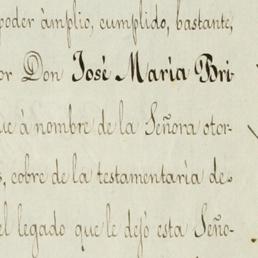 poder àmplio, cumplido, bastante,
or Don José Maria Bri-
ue à nombre de la Señora otor-
s, cobre de la testamentaría de
el legado que le dejó esta Seño-